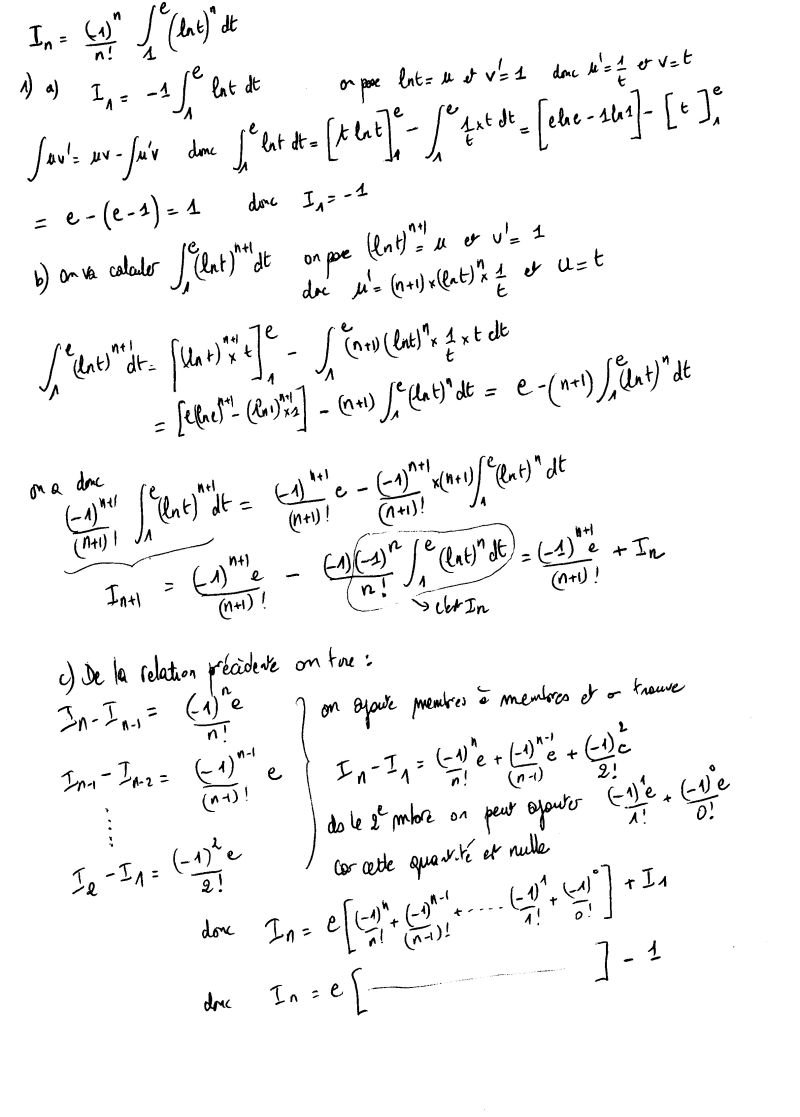 Iₙ = (-1)ⁿ/n! ∫₁ᵉ (ln t)ⁿ dt
1) a) I₁ = -1 ∫₁ᵉ ln t dt on pose ln t = u et v' = 1 donc u' = 1/t et v = t
∫uv' = uv - ∫u'v donc ∫₁ᵉ ln t dt = [t ln t]₁ᵉ - ∫₁ᵉ 1/t × t dt = [e ln e - 1 ln 1] - [t]₁ᵉ
= e - (e - 1) = 1 donc I₁ = -1
b) on va calculer ∫₁ᵉ (ln t)ⁿ⁺¹ dt on pose (ln t)ⁿ⁺¹ = u et v' = 1
donc u' = (n+1) × (ln t)ⁿ × 1/t et u = t
∫₁ᵉ (ln t)ⁿ⁺¹ dt = [(ln t)ⁿ⁺¹ × t]₁ᵉ - ∫₁ᵉ (n+1) (ln t)ⁿ × 1/t × t dt
= [e(ln e)ⁿ⁺¹ - (ln 1)ⁿ⁺¹ × 1] - (n+1) ∫₁ᵉ (ln t)ⁿ dt = e - (n+1) ∫₁ᵉ (ln t)ⁿ dt
on a donc
(-1)ⁿ⁺¹/(n+1)! ∫₁ᵉ (ln t)ⁿ⁺¹ dt = (-1)ⁿ⁺¹/(n+1)! e - (-1)ⁿ⁺¹/(n+1)! × (n+1) ∫₁ᵉ (ln t)ⁿ dt
Iₙ₊₁ = (-1)ⁿ⁺¹ e/(n+1)! - (-1)(-1)ⁿ/n! ∫₁ᵉ (ln t)ⁿ dt = (-1)ⁿ⁺¹ e/(n+1)! + Iₙ
↘ c'est Iₙ
c) De la relation précédente on tire :
Iₙ - Iₙ₋₁ = (-1)ⁿ e/n!
Iₙ₋₁ - Iₙ₋₂ = (-1)ⁿ⁻¹/(n-1)! e
.....
I₂ - I₁ = (-1)² e/2!
on ajoute membres à membres et on trouve
Iₙ - I₁ = (-1)ⁿ/n! e + (-1)ⁿ⁻¹/(n-1) e + (-1)² e/2!
ds le 2ᵉ mbre on peut ajouter (-1)¹ e/1! + (-1)⁰ e/0!
car cette quantité est nulle
donc Iₙ = e [(-1)ⁿ/n! + (-1)ⁿ⁻¹/(n-1)! + ..... (-1)¹/1! + (-1)⁰/0!] + I₁
donc Iₙ = e [ ——— ] - 1